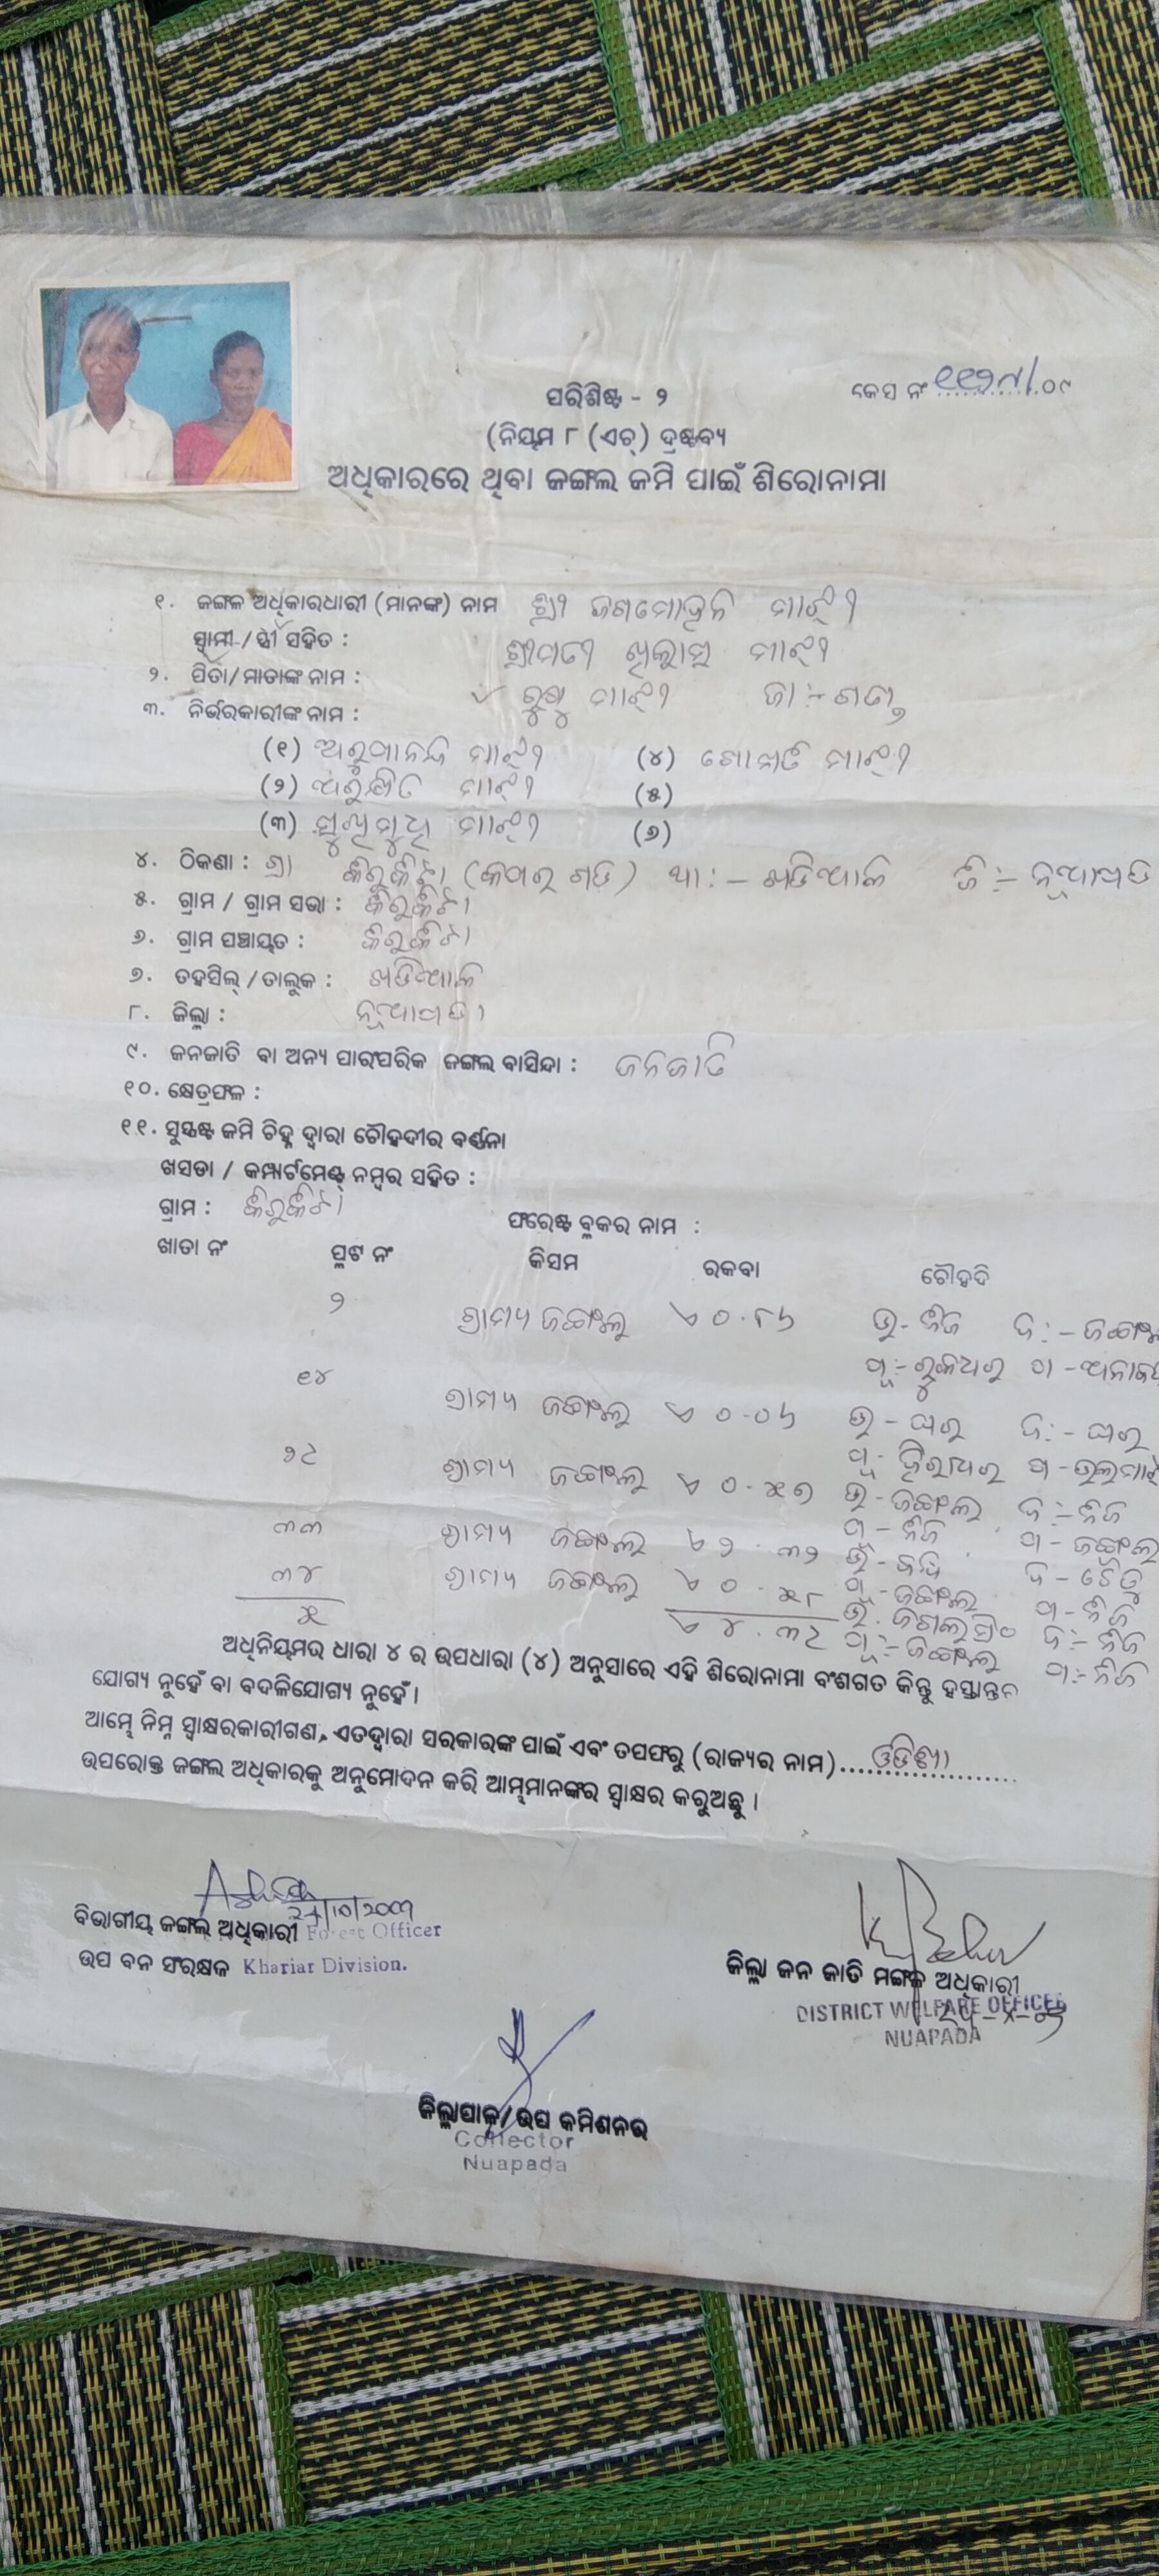 ପରିଶିଷ୍ଟ - ୨
କେସ ନଂ ୧୧୨୩/୦୯
(ନିୟମ ୮ (ଏଚ୍) ଦ୍ରଷ୍ଟବ୍ୟ
ଅଧିକାରରେ ଥିବା ଜଙ୍ଗଲ ଜମି ପାଇଁ ଶିରୋନାମା
୧. ଜଙ୍ଗଳ ଅଧିକାରଧାରୀ (ମାନଙ୍କ) ନାମ ଶ୍ରୀ ଜଗମୋହନ ମାଝୀ
ସ୍ୱାମୀ / ସ୍ତ୍ରୀ ସହିତ : ଶ୍ରୀମତୀ ମାଝୀ
୨. ପିତା/ମାତାଙ୍କ ନାମ : ମାଝୀ ଜା :- ଗଣ୍ଡ
୩. ନିର୍ଭରକାରୀଙ୍କ ନାମ :
(୧) ମାଝୀ (୪) ଗୋମତି ମାଝୀ
(୨) ମାଝୀ (୫)
(୩) ମାଝୀ (୬)
୪. ଠିକଣା : ଗ୍ରା କିରୁକିଟା ଥା :- ଖଡିଆଳ ଜି :- ନୂଆପଡା
୫. ଗ୍ରାମ / ଗ୍ରାମ ସଭା : କିରୁକିଟା
୬. ଗ୍ରାମ ପଞ୍ଚାୟତ : କିରୁକିଟା
୭. ତହସିଲ୍ / ତାଲୁକ : ଖଡିଆଳ
୮. ଜିଲ୍ଲା : ନୂଆପଡା
୯. ଜନଜାତି ବା ଅନ୍ୟ ପାରଂପରିକ ଜଙ୍ଗଲ ବାସିନ୍ଦା : ଜନଜାତି
୧୦. କ୍ଷେତ୍ରଫଳ :
୧୧. ସୁସ୍ପଷ୍ଟ ଜମି ଚିହ୍ନ ଦ୍ୱାରା ଚୌହଦୀର ବର୍ଣ୍ଣନା
ଖସଡା / କମ୍ପାର୍ଟମେଣ୍ଟ୍ ନମ୍ବର ସହିତ :
ଗ୍ରାମ : କିରୁକିଟା ଫରେଷ୍ଟ ବ୍ଳକର ନାମ :
ଖାତା ନଂ ପ୍ଳଟ ନଂ କିସମ ରକବା ଚୌହଦି
୨ ଗ୍ରାମ୍ୟ ଜଙ୍ଗଲ ଏ ୦.୮୬ ଉ - ନିଜ ଦ :- ଜଙ୍ଗଲ
୧୪ ଗ୍ରାମ୍ୟ ଜଙ୍ଗଲ ଏ ୦.୦୬ ଉ - ଘର ଦ :- ଘର
୨୯ ଗ୍ରାମ୍ୟ ଜଙ୍ଗଲ ଏ ୦.୫୭ ଉ - ଜଙ୍ଗଲ ଦ :- ନିଜ
ପୂ - ନିଜ ପ - ଜଙ୍ଗଲ
୩୩ ଗ୍ରାମ୍ୟ ଜଙ୍ଗଲ ଏ ୨.୩୨
୩୪ ଗ୍ରାମ୍ୟ ଜଙ୍ଗଲ ଏ ୦.୫୮ ପୂ - ଜଙ୍ଗଲ ପ - ନିଜ
୫ ଏ ୪.୩୯ ପୂ :- ଜଙ୍ଗଲ ପ :- ନିଜ
ଅଧିନିୟମର ଧାରା ୪ ର ଉପଧାରା (୪) ଅନୁସାରେ ଏହି ଶିରୋନାମା ବଂଶଗତ କିନ୍ତୁ ହସ୍ତାନ୍ତର
ଯୋଗ୍ୟ ନୁହେଁ ବା ବଦଳିଯୋଗ୍ୟ ନୁହେଁ ।
ଆମ୍ଭେ ନିମ୍ନ ସ୍ୱାକ୍ଷରକାରୀଗଣ, ଏତଦ୍ୱାରା ସରକାରଙ୍କ ପାଇଁ ଏବଂ ତପଫରୁ (ରାଜ୍ୟର ନାମ) ଓଡିଶା
ଉପରୋକ୍ତ ଜଙ୍ଗଲ ଅଧିକାରକୁ ଅନୁମୋଦନ କରି ଆମ୍ଭମାନଙ୍କର ସ୍ୱାକ୍ଷର କରୁଅଛୁ ।
24/10/2009
ବିଭାଗୀୟ ଜଙ୍ଗଲ ଅଧିକାରୀ Forest Officer
ଉପ ବନ ସଂରକ୍ଷକ Khariar Division.
ଜିଲ୍ଲା ଜନ ଜାତି ମଙ୍ଗଳ ଅଧିକାରୀ
DISTRICT WELFARE OFFICER
NUAPADA
ଜିଲ୍ଲାପାଳ/ଉପ କମିଶନର
Collector
Nuapada